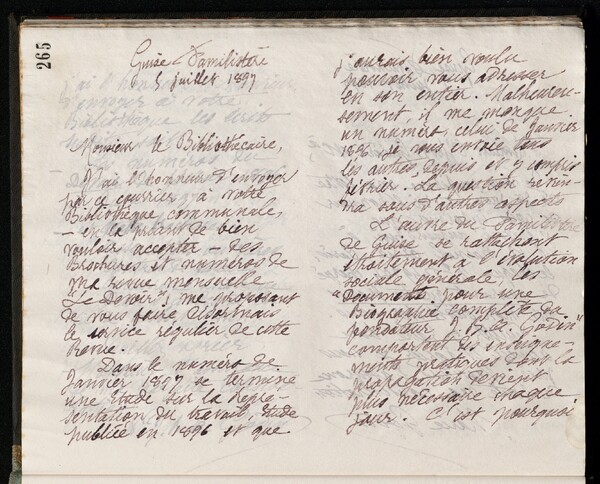 265
Guise Familistère
5 juillet 1897
Monsieur le Bibliothécaire,
J'ai l'honneur d'envoyer
par ce courrier à votre
Bibliothèque communale,
– en la priant de bien
vouloir accepter – des
Brochures et numéros de
ma revue mensuelle
"Le Devoir", me proposant
de vous faire désormais
le service régulier de cette
Revue.
Dans le numéro de
Janvier 1897 se termine
une étude sur la Repré-
sentation du travail, étude
publiée en 1896 et que
j'aurais bien voulu
pouvoir vous adresser
en son entier. Malheureu-
sement, il me manque
un numéro, celui de Janvier
1896. Je vous envoie tous
les autres, depuis et y compris
février. La question revien-
dra sous d'autres aspects.
L'œuvre du Familistère
de Guise se rattachant
étroitement à l'évolution
sociale générale, les
"Documents pour une
Biographie complète du
fondateur J. B. A. Godin"
comportent des enseigne-
ments pratiques dont la
propagation devient
plus nécessaire chaque
jour. C'est pourquoi